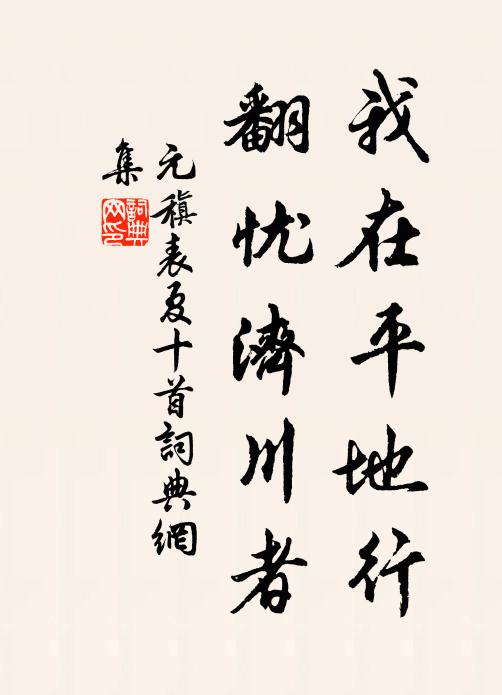 我在平地行
翻忧濟川者
元稹表夏十首詞典網
集
詞典
网印